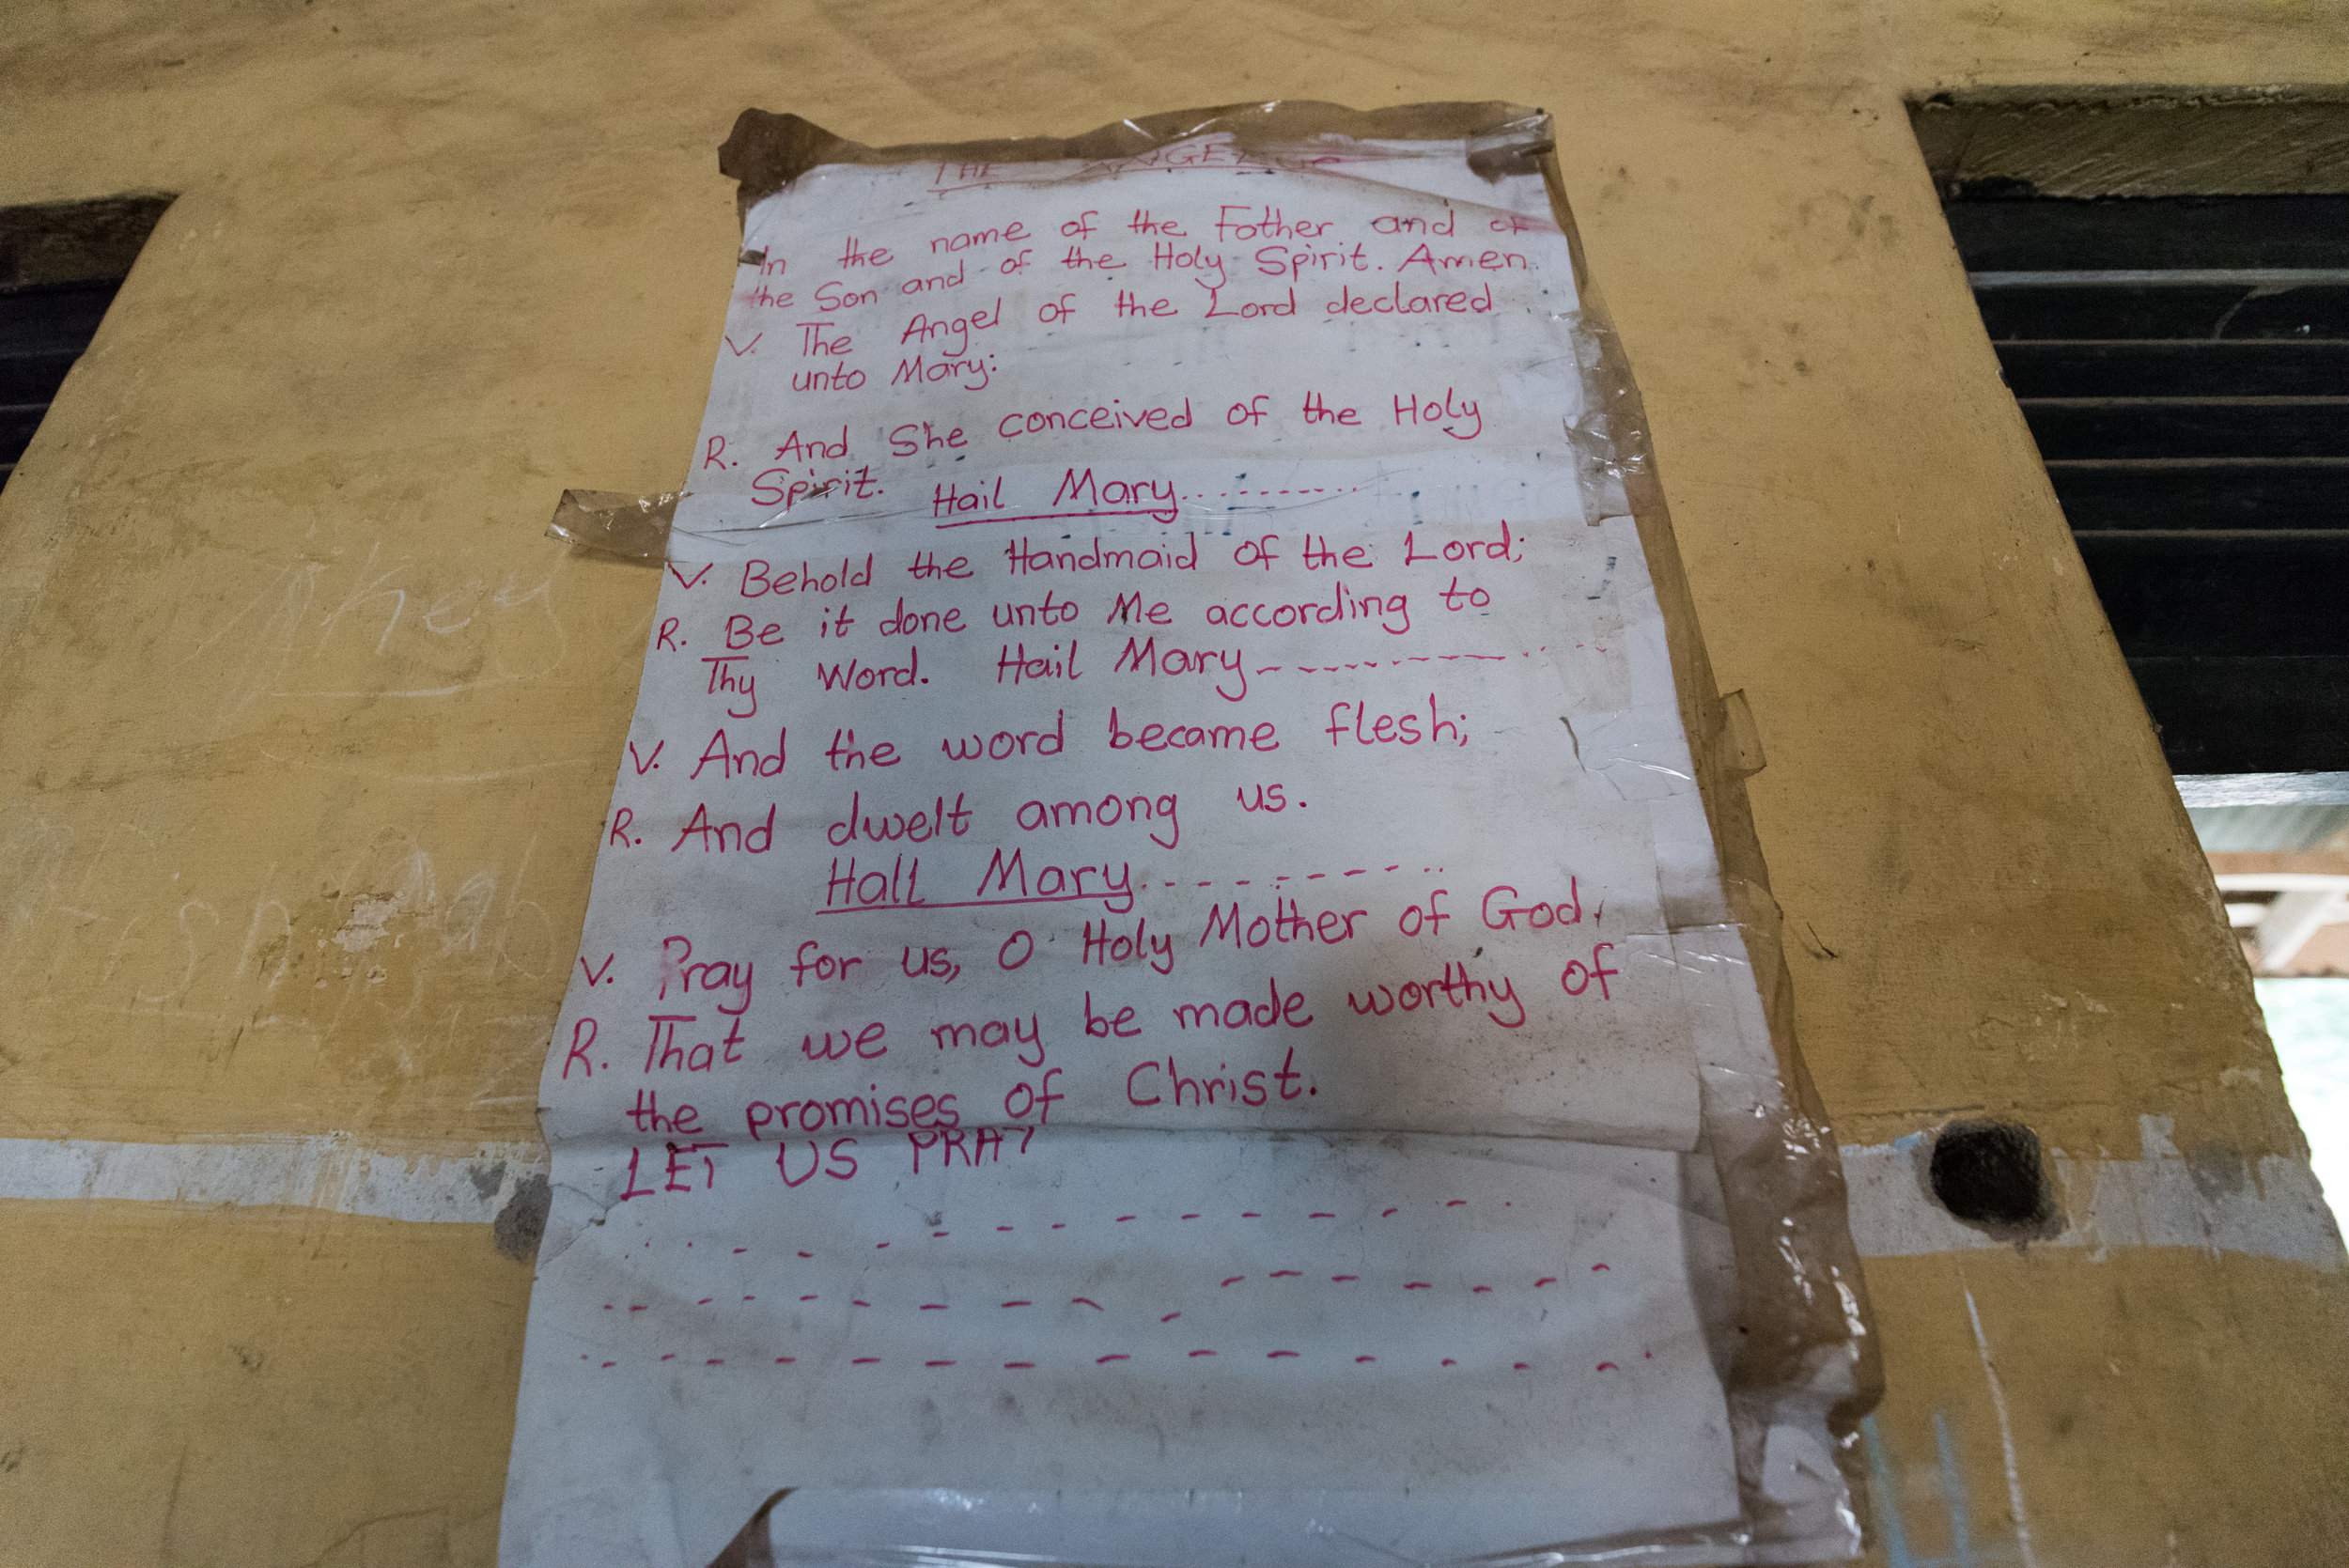 THE ANGELUS
In the name of the Father and of
the Son and of the Holy Spirit. Amen.
V. The Angel of the Lord declared
unto Mary:
R. And She conceived of the Holy
Spirit. Hail Mary..........
V. Behold the Handmaid of the Lord;
R. Be it done unto Me according to
Thy Word. Hail Mary-------------
V. And the word became flesh;
R. And dwelt among us.
Hail Mary.----------
V. Pray for us, O Holy Mother of God,
R. That we may be made worthy of
the promises of Christ.
LET US PRAY